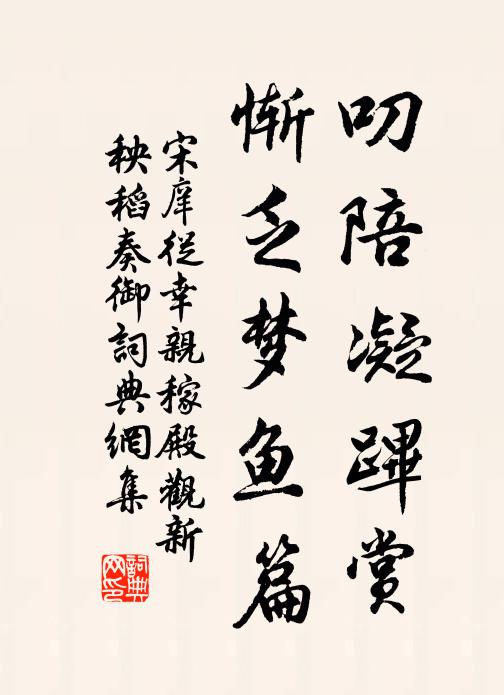 叨陪凝蹕赏
惭乏梦鱼篇
宋庠從幸親稼殿觀新
秧稻奏御詞典網集
詞典网印